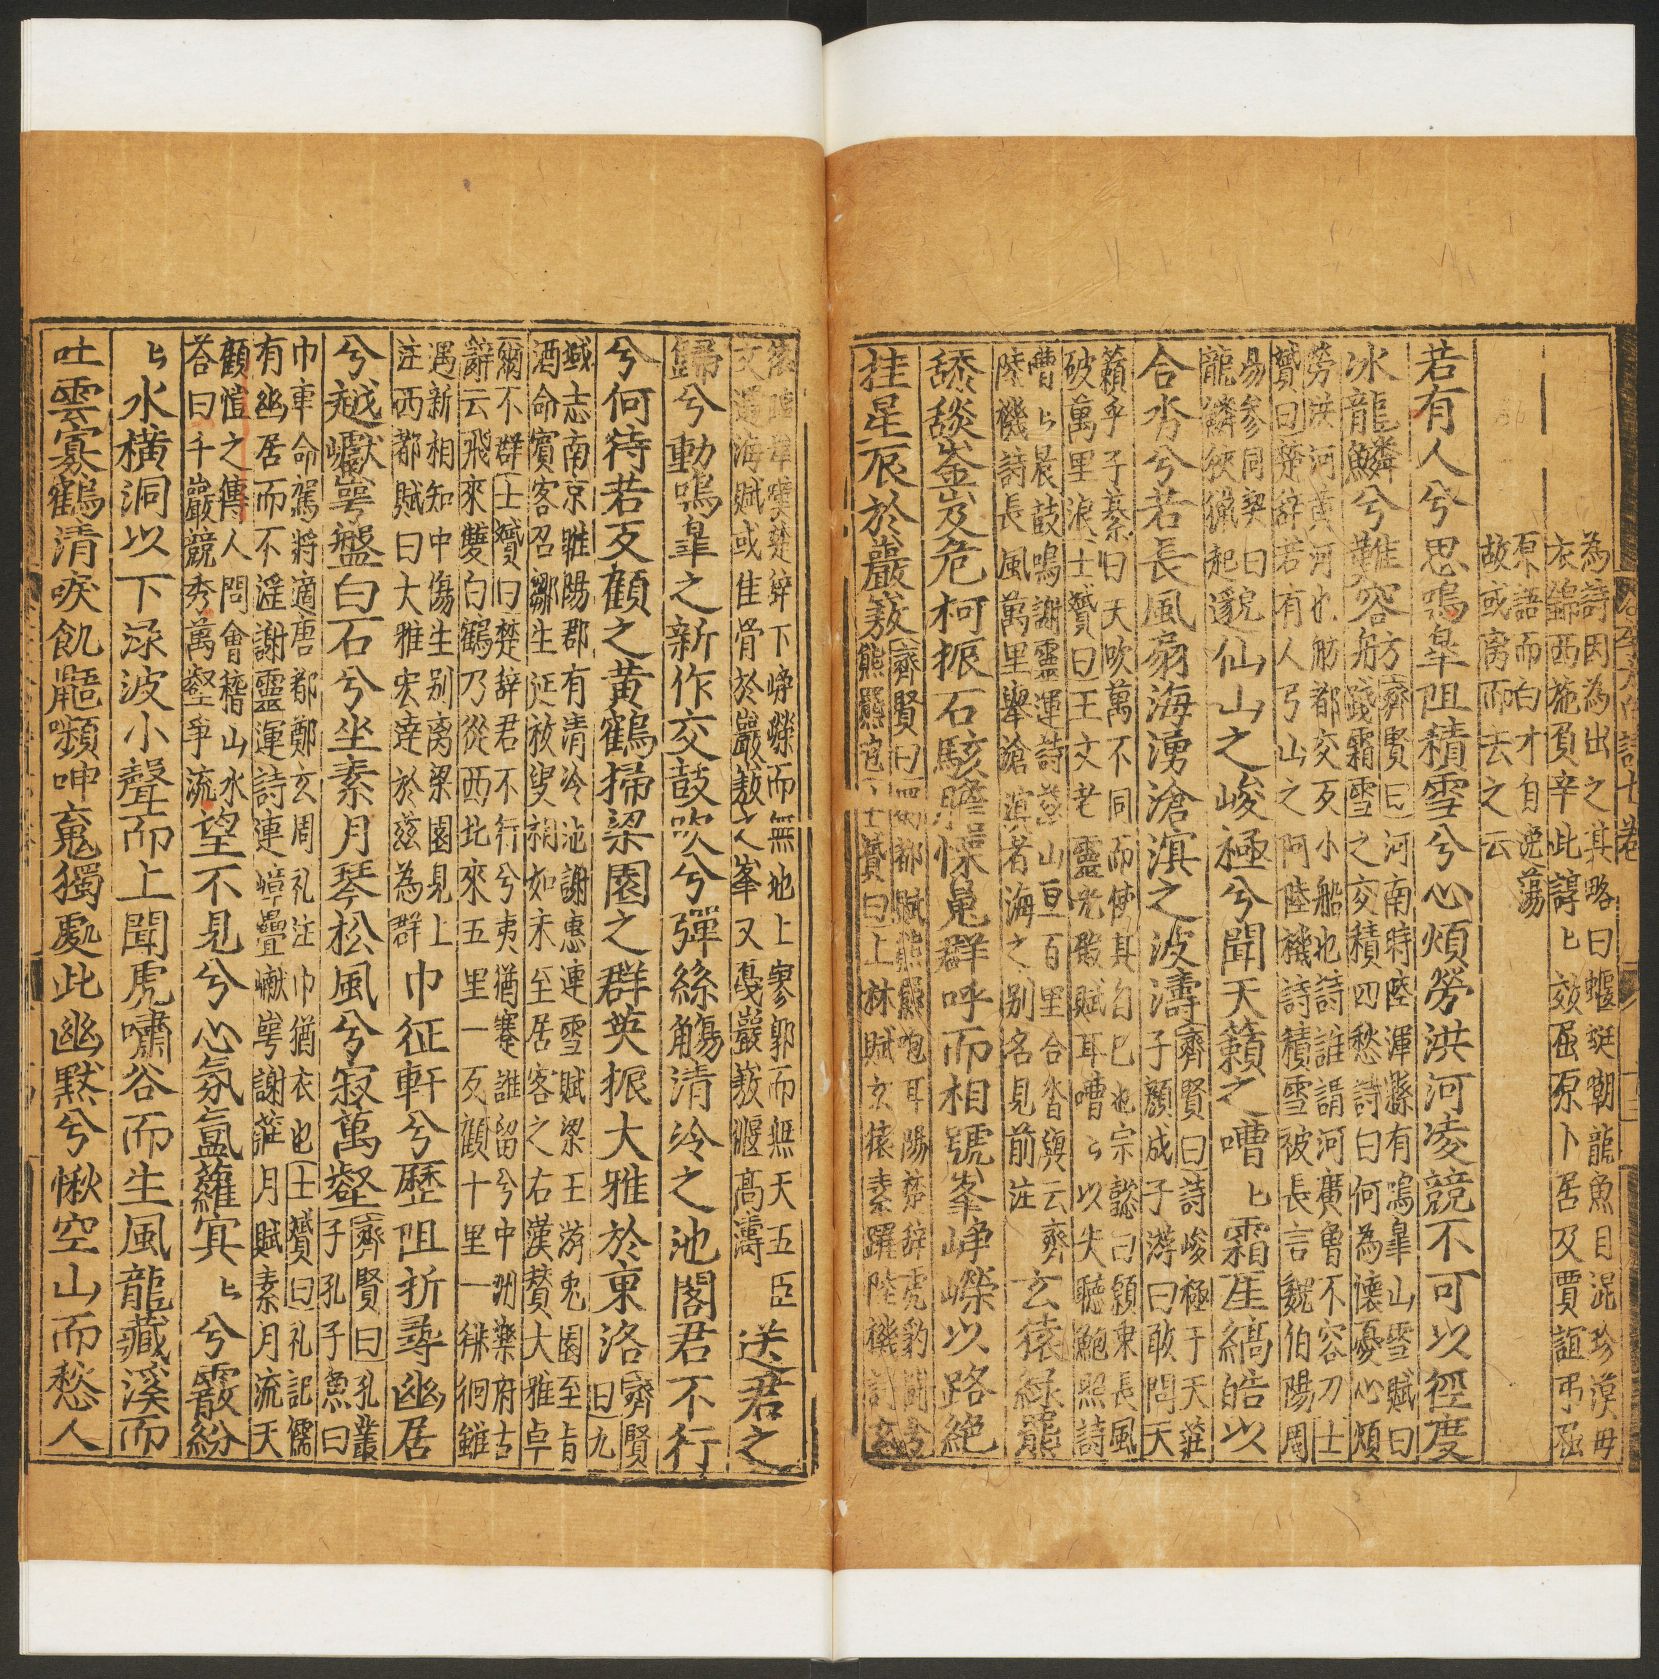 為詩因為出之其略曰蝘蜓嘲龍魚目混珍漠毋
衣錦西施負辛此諄〻效屈原卜居及賈誼弔屈
原語而白才自逸蕩
故或离而去之云
若有人兮思鳴皐阻積雪兮心煩勞洪河凌競不可以徑度
冰龍鱗兮難容舠
方齊賢曰河南時陸渾縣有鳴皐山雪賦曰
踐霜雪之交積四愁詩曰何為懷憂心煩
勞洪河黃河也舫都交反小船也詩誰謂河廣魯不容刀士
贇曰楚辞若有人兮山之阿陸機詩積雪被長言魏伯陽周
易参同契曰
龍鱗狹獵起
邈仙山之峻極兮聞天籟之嘈〻霜崖縞皓以
合沓兮若長風扇海湧滄溟之波濤
齊賢曰詩峻極于天莊
子顏成子游曰敢問天
籟乎子綦曰天吹萬不同而使其自已也宗懿曰願乘長風
破萬里浪士贇曰王文考靈光殿賦耳嘈〻以失聽鮑照詩
嘈〻晨鼓鳴謝靈運詩巒山亘百里合沓與云齊
陸機詩長風萬里舉滄溟者海之别名見前注
玄猿綠羆
舔舕崟岌危柯振石駭膽慄魄群呼而相號峯崢嶸以路絕
挂星辰於巖嶅
齊賢曰西都賦熊羆咆耳陽楚辞虎豹鬬
熊羆咆士贇曰上林賦玄猿素蠷陸機詩玄
下崢嶸而無地上寥郭而無天五臣
文選海賦或隹骨於巖嶅之峯又戛巖嶅偃高濤
送君之
歸兮動鳴皐之新作交鼓吹兮彈絲觴清泠之池閣君不行
兮何待若反顧之黃鶴掃梁園之群英振大雅於東洛
齊賢
曰九
域志南京睢陽郡有清泠池謝惠連雪賦梁王游兎園至旨
酒命賓客召鄒生延放叟相如未至居客之右漢賛大雅卓
爾不群士贇曰楚辞君不行兮夷猶蹇誰留兮中洲樂府古
辭云飛來雙白鶴乃從西北來五里一反顧十里一徘徊雖
遇新相知中傷生别离梁園見上
注西都賦曰大雅宏達於兹為群
巾征軒兮歷阻折尋幽居
兮越巘崿盤白石兮坐素月琴松風兮寂萬壑
齊賢曰孔叢
子子孔子魚曰
巾車命駕將適唐都鄭玄周礼注巾猶衣也士贇曰礼記儒
有幽居而不滛謝靈運詩連嶂疊巘崿謝莊月賦素月流天
顧愷之傳人問會稽山水
荅曰千巖競秀萬壑爭流
望不見兮心氛氳蘿冥〻兮霰紛
〻水橫洞以下渌波小聲而上聞虎嘯谷而生風龍藏溪而
吐雲寡鶴清唳飢鼯嚬呻䰟獨處此幽默兮愀空山而愁人